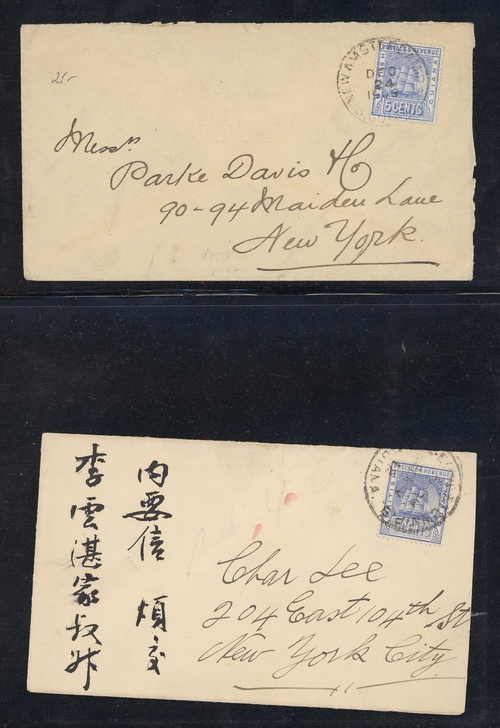 25-
NEW AMSTERDAM
DE 0
24
1909
POSTAGE & REVENUE
BRITISH
GUIANA
5 CENTS
Messrs
Parke Davis & Co
90-94 Maiden Lane
New York.
內要信 煩交
李雲湛家叔升
POSTAGE & REVENUE
GUIANA
Char Lee
204 East 104th St
New York City